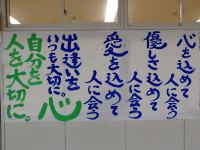 心を込めて
人に会う
優しさ込めて
人に会う
愛を込めて
人に会う
出逢いを
いつも大切に。
心
自分を
人を大切に。